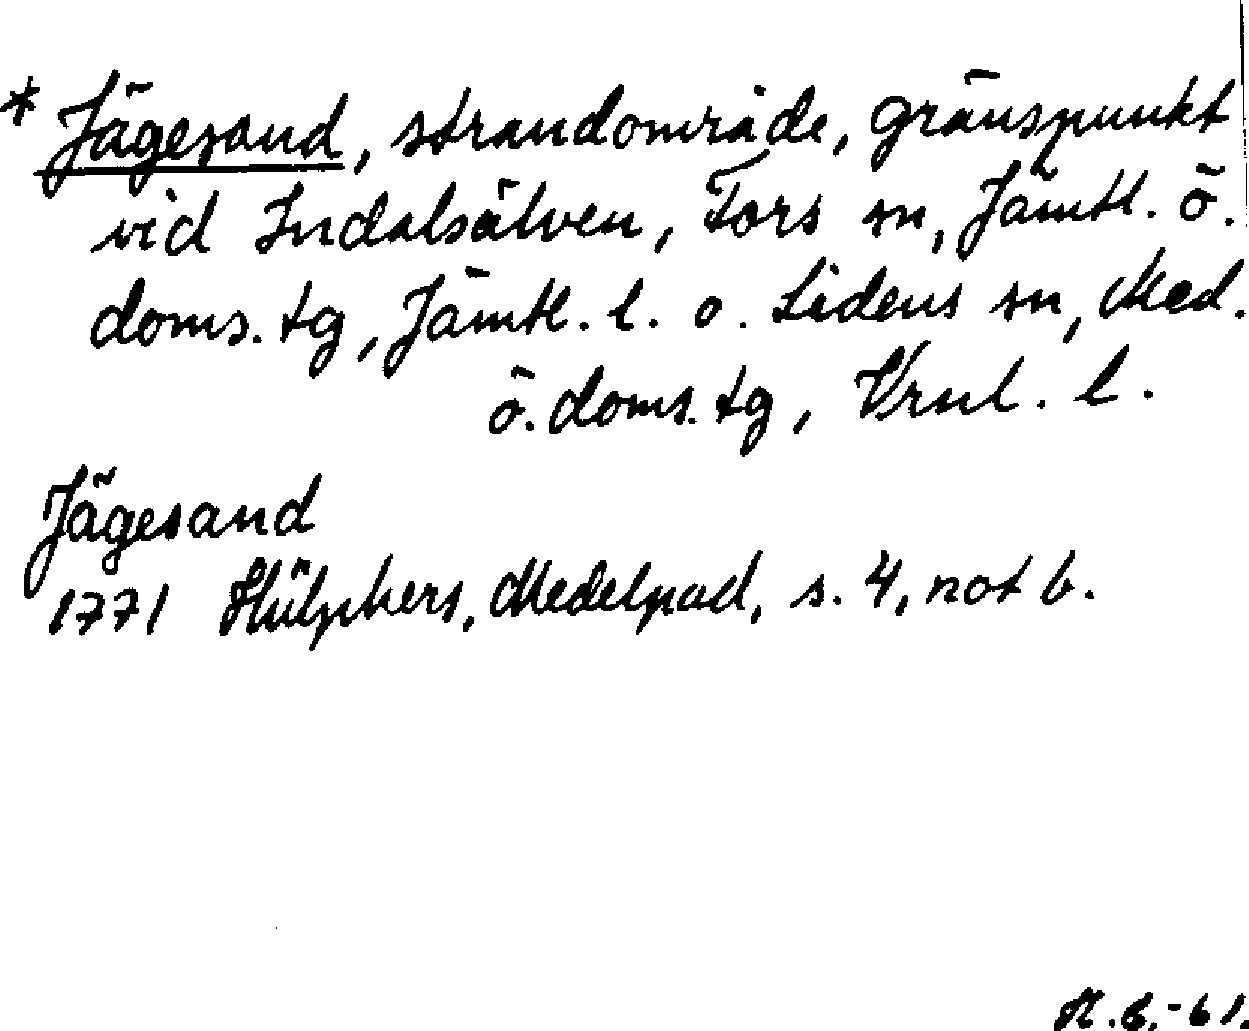 * Jägesand, strandområde, gränspunkt
vid Indalsälven, Fors sn, Jämtl. ö.
doms. tg, Jämtl. l. o. Lidens sn, Med.
ö. doms. tg, Vrnl. l.
Jägesand
1771 Hülphers, Medelpad, s. 4, not b.
H.B.-61.